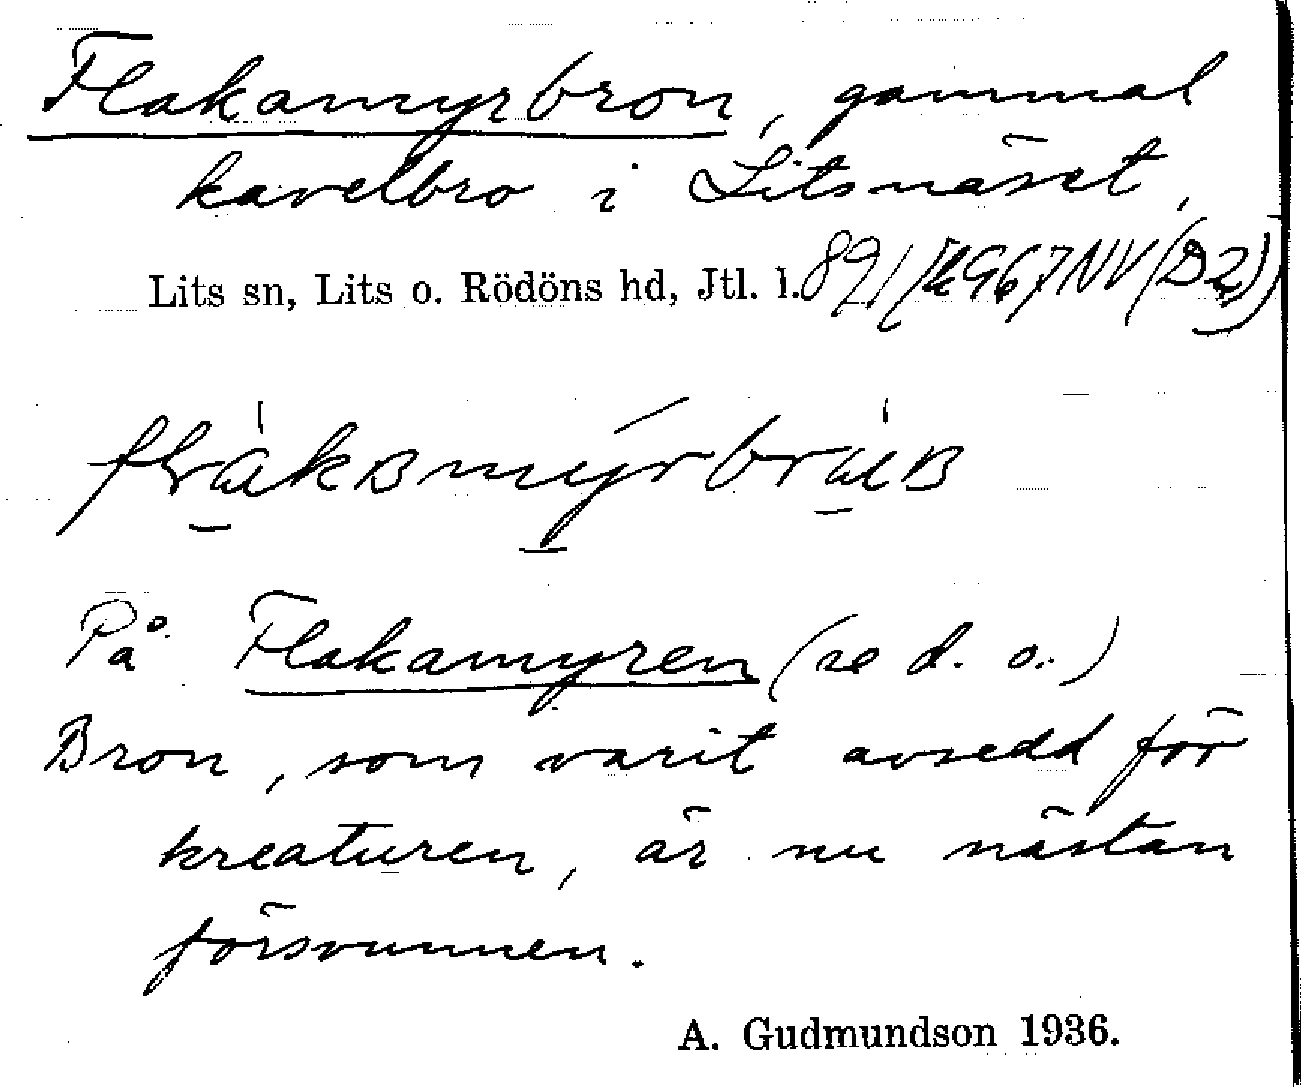 Flakamyrbron, gammal
kavelbro i Litsnäset,
Lits sn, Lits o. Rödöns hd, Jtl. l.
På Flakamyren (se d. o.)
Bron, som varit avsedd för
kreaturen, är nu nästan
försvunnen.
A. Gudmundson 1936.